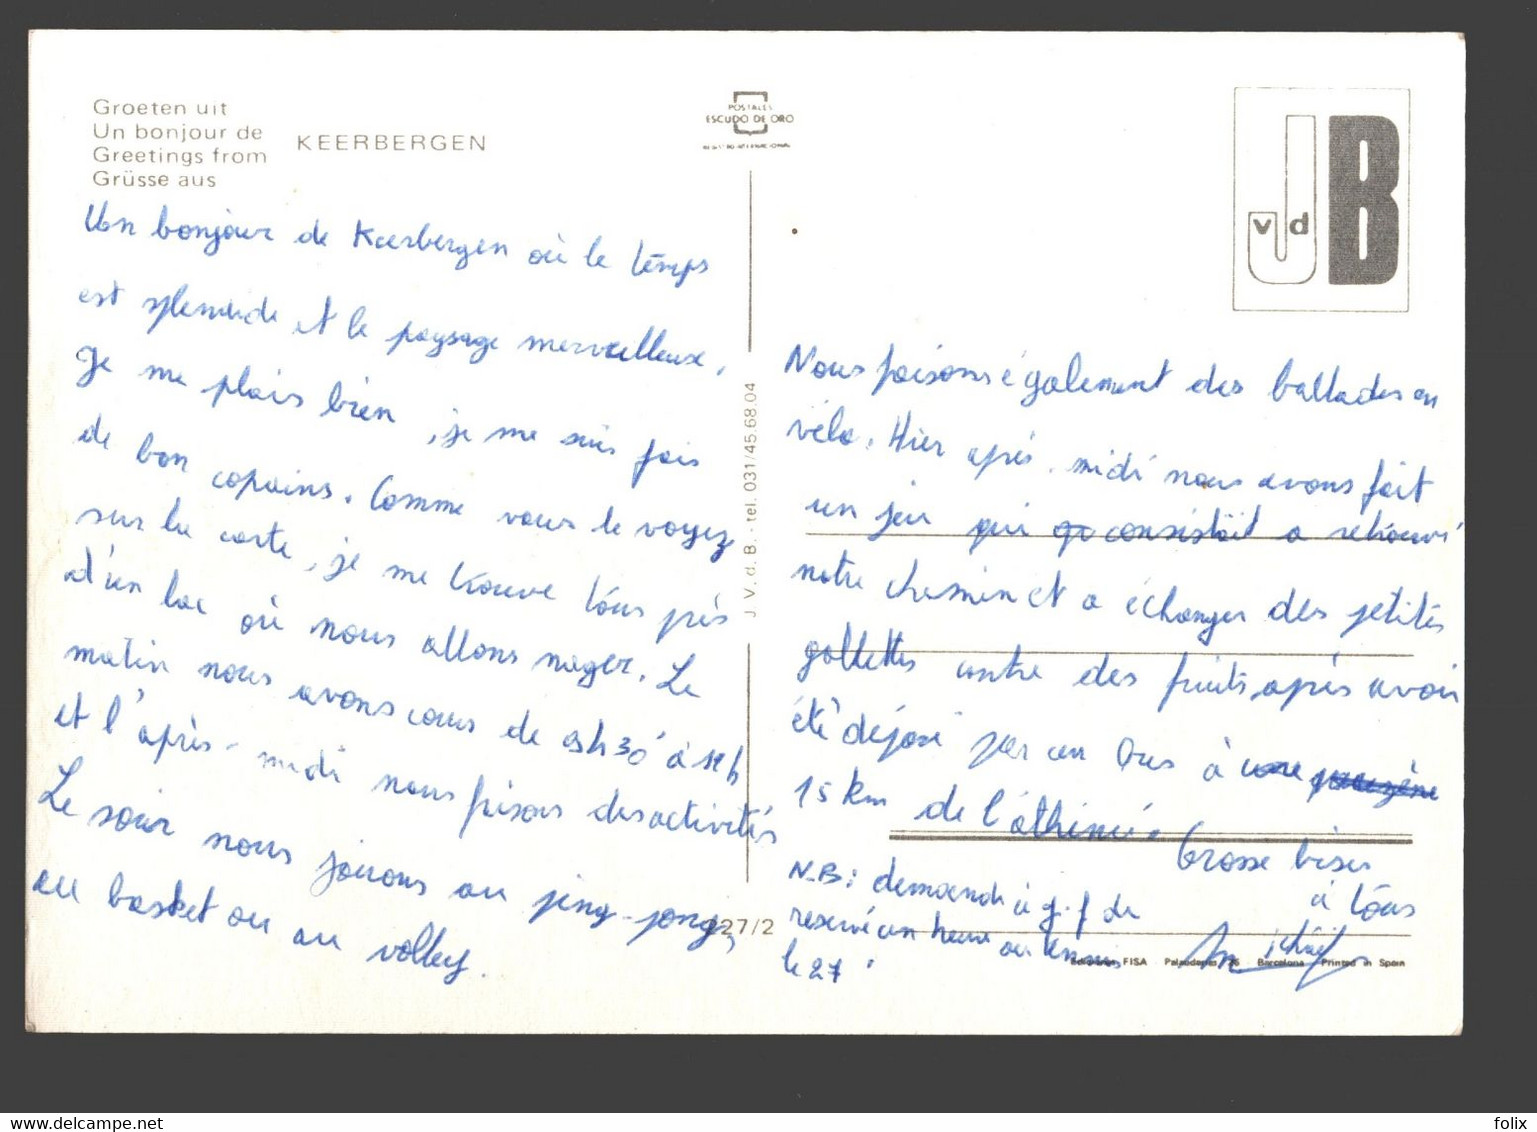 Groeten uit
Un bonjour de
Greetings from
Grüsse aus
KEERBERGEN
POSTALES
ESCUDO DE ORO
REGISTRO INTERNACIONAL
J
B
v d
Un bonjour de Keerbergen où le temps
est splendide et le paysage merveilleux,
Je me plais bien, je me suis fais
de bon copains. Comme vous le voyez
sur la carte, je me trouve tous près
d'un lac où nous allons nager. Le
matin nous avons cours de 9h30 à 12h
et l'après-midi nous faisons des activités
Le soir nous jouons au ping-pong,
au basket ou au volley.
J. V. d. B. - tel. 031/45 68 04
227/2
Nous faisons également des ballades en
vélo. Hier après-midi nous avons fait
un jeu qui consistait a retrouvé
notre chemin et a échanger des petites
gallettes contre des fruits, après avoir
été déposé par un bus à une
15 km de l'athénée. Grosse bises
à tous
N.B: demande à g.f de
reservé un heure au tennis
le 27
Michaël
Ediciones FISA Palaudarias, 26 Barcelona Printed in Spain
folix